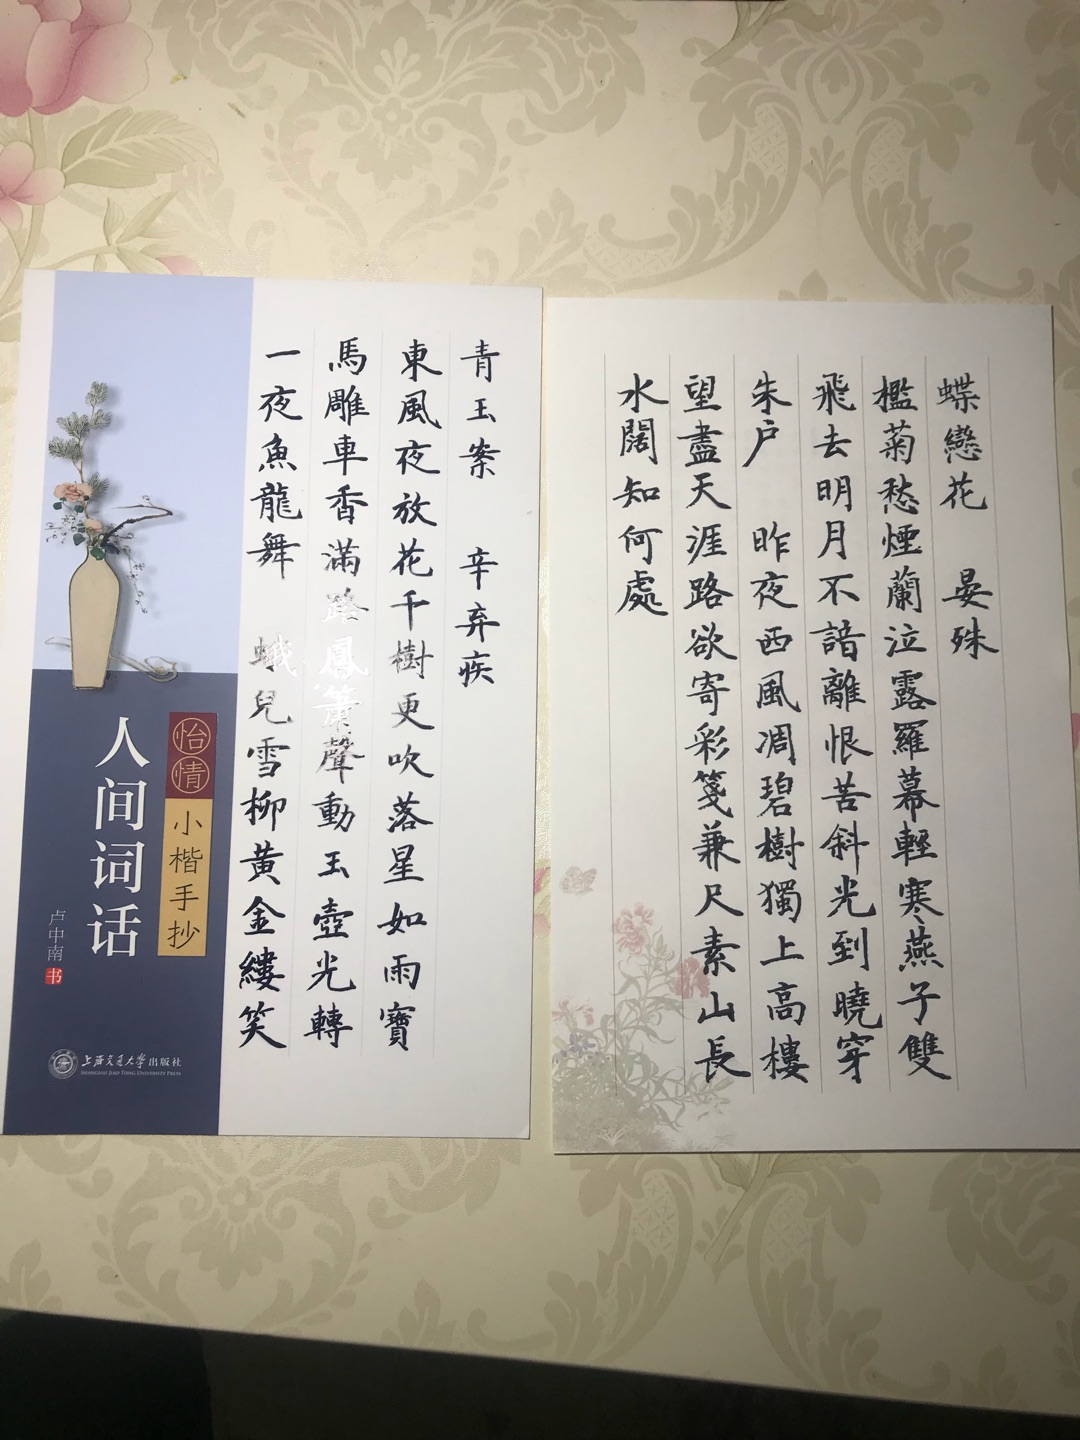 蝶戀花 晏殊
檻菊愁煙蘭泣露羅幕輕寒燕子雙
飛去明月不諳離恨苦斜光到曉穿
朱户 昨夜西風凋碧樹獨上高樓
望盡天涯路欲寄彩箋兼尺素山長
水闊知何處
青玉案 辛弃疾
東風夜放花千樹更吹落星如雨寶
馬雕車香滿路鳳簫聲動玉壺光轉
一夜魚龍舞 蛾兒雪柳黃金縷笑
怡情
小楷手抄
人间词话
卢中南 书
上海交通大学出版社
SHANGHAI JIAO TONG UNIVERSITY PRESS